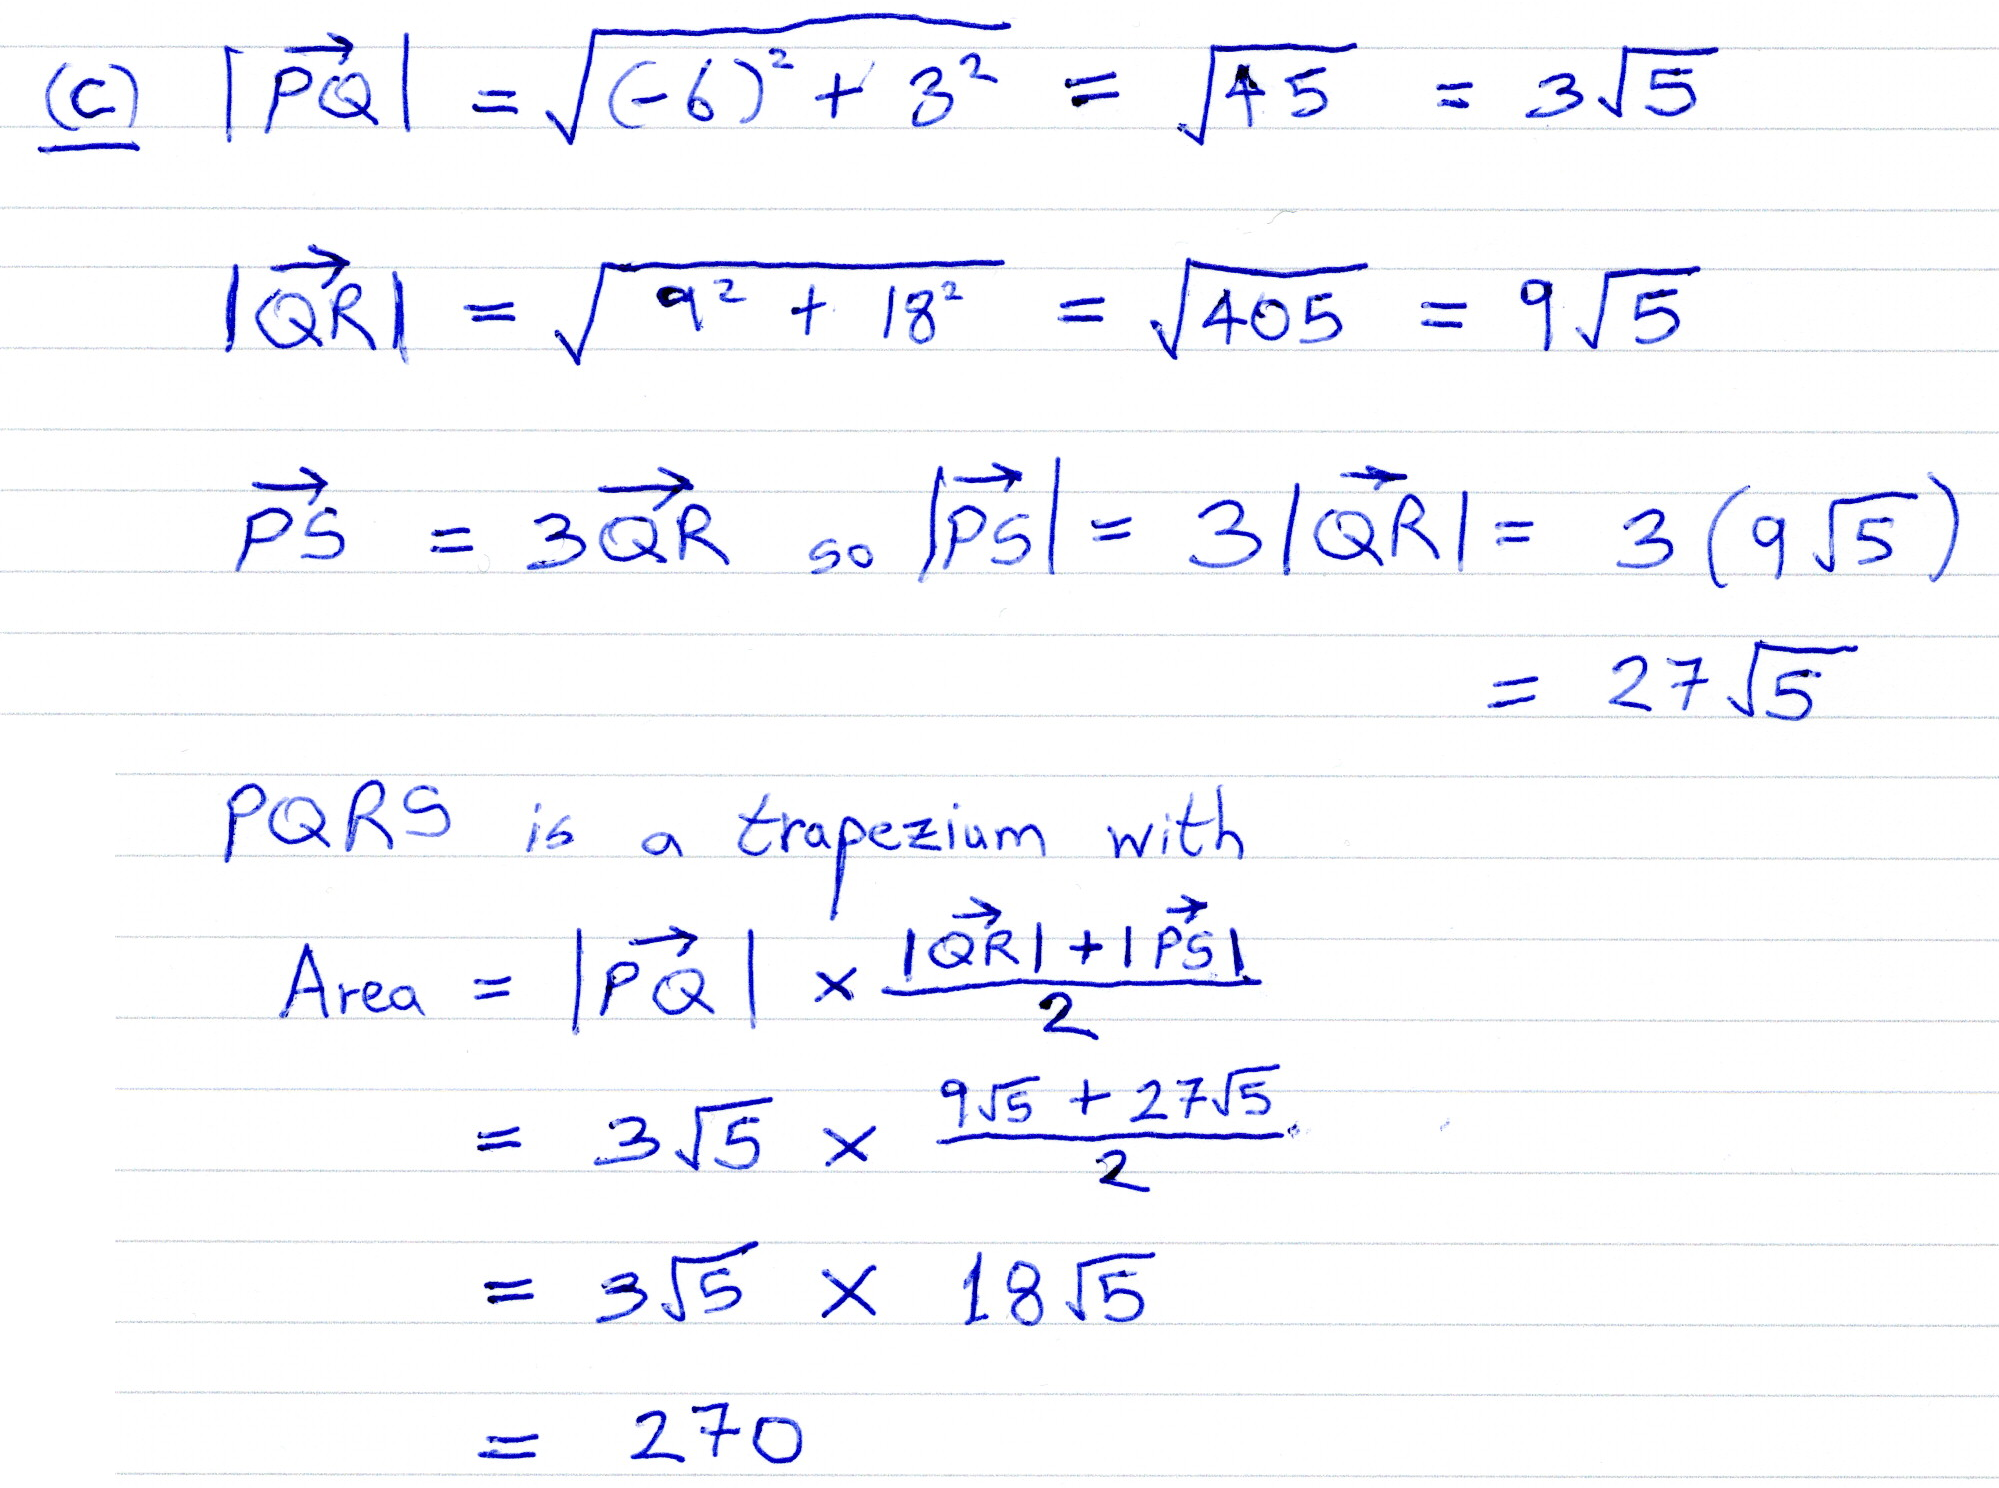 (c) |PQ⃗| = √((-6)² + 3²) = √45 = 3√5
|QR⃗| = √(9² + 18²) = √405 = 9√5
PS⃗ = 3QR⃗ so |PS⃗| = 3|QR⃗| = 3(9√5)
= 27√5
PQRS is a trapezium with
Area = |PQ⃗| × (|QR⃗| + |PS⃗|)/2
= 3√5 × (9√5 + 27√5)/2
= 3√5 × 18√5
= 270